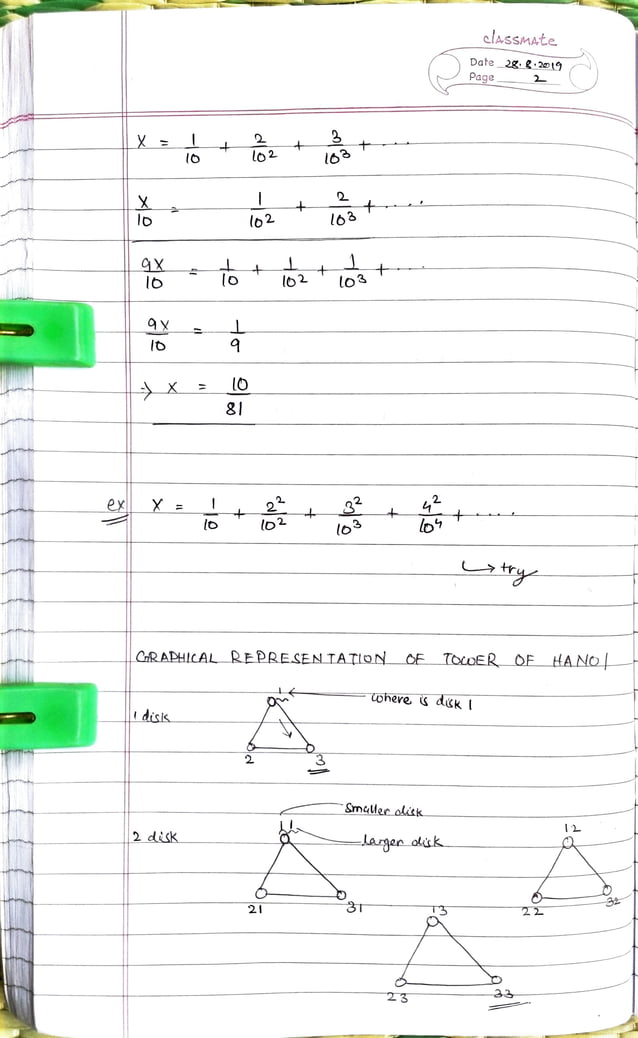 classmate
Date 28.8.2019
Page 2
x = 1/10 + 2/10² + 3/10³ + ....
x/10 = 1/10² + 2/10³ + ....
9x/10 = 1/10 + 1/10² + 1/10³ + ....
9x/10 = 1/9
→ x = 10/81
ex x = 1/10 + 2²/10² + 3²/10³ + 4²/10⁴ + ....
↳ try
GRAPHICAL REPRESENTATION OF TOWER OF HANOI
1 ← where is disk 1
1 disk
2 3
smaller disk
2 disk 11 larger disk 12
21 31 22 32
13
23 33